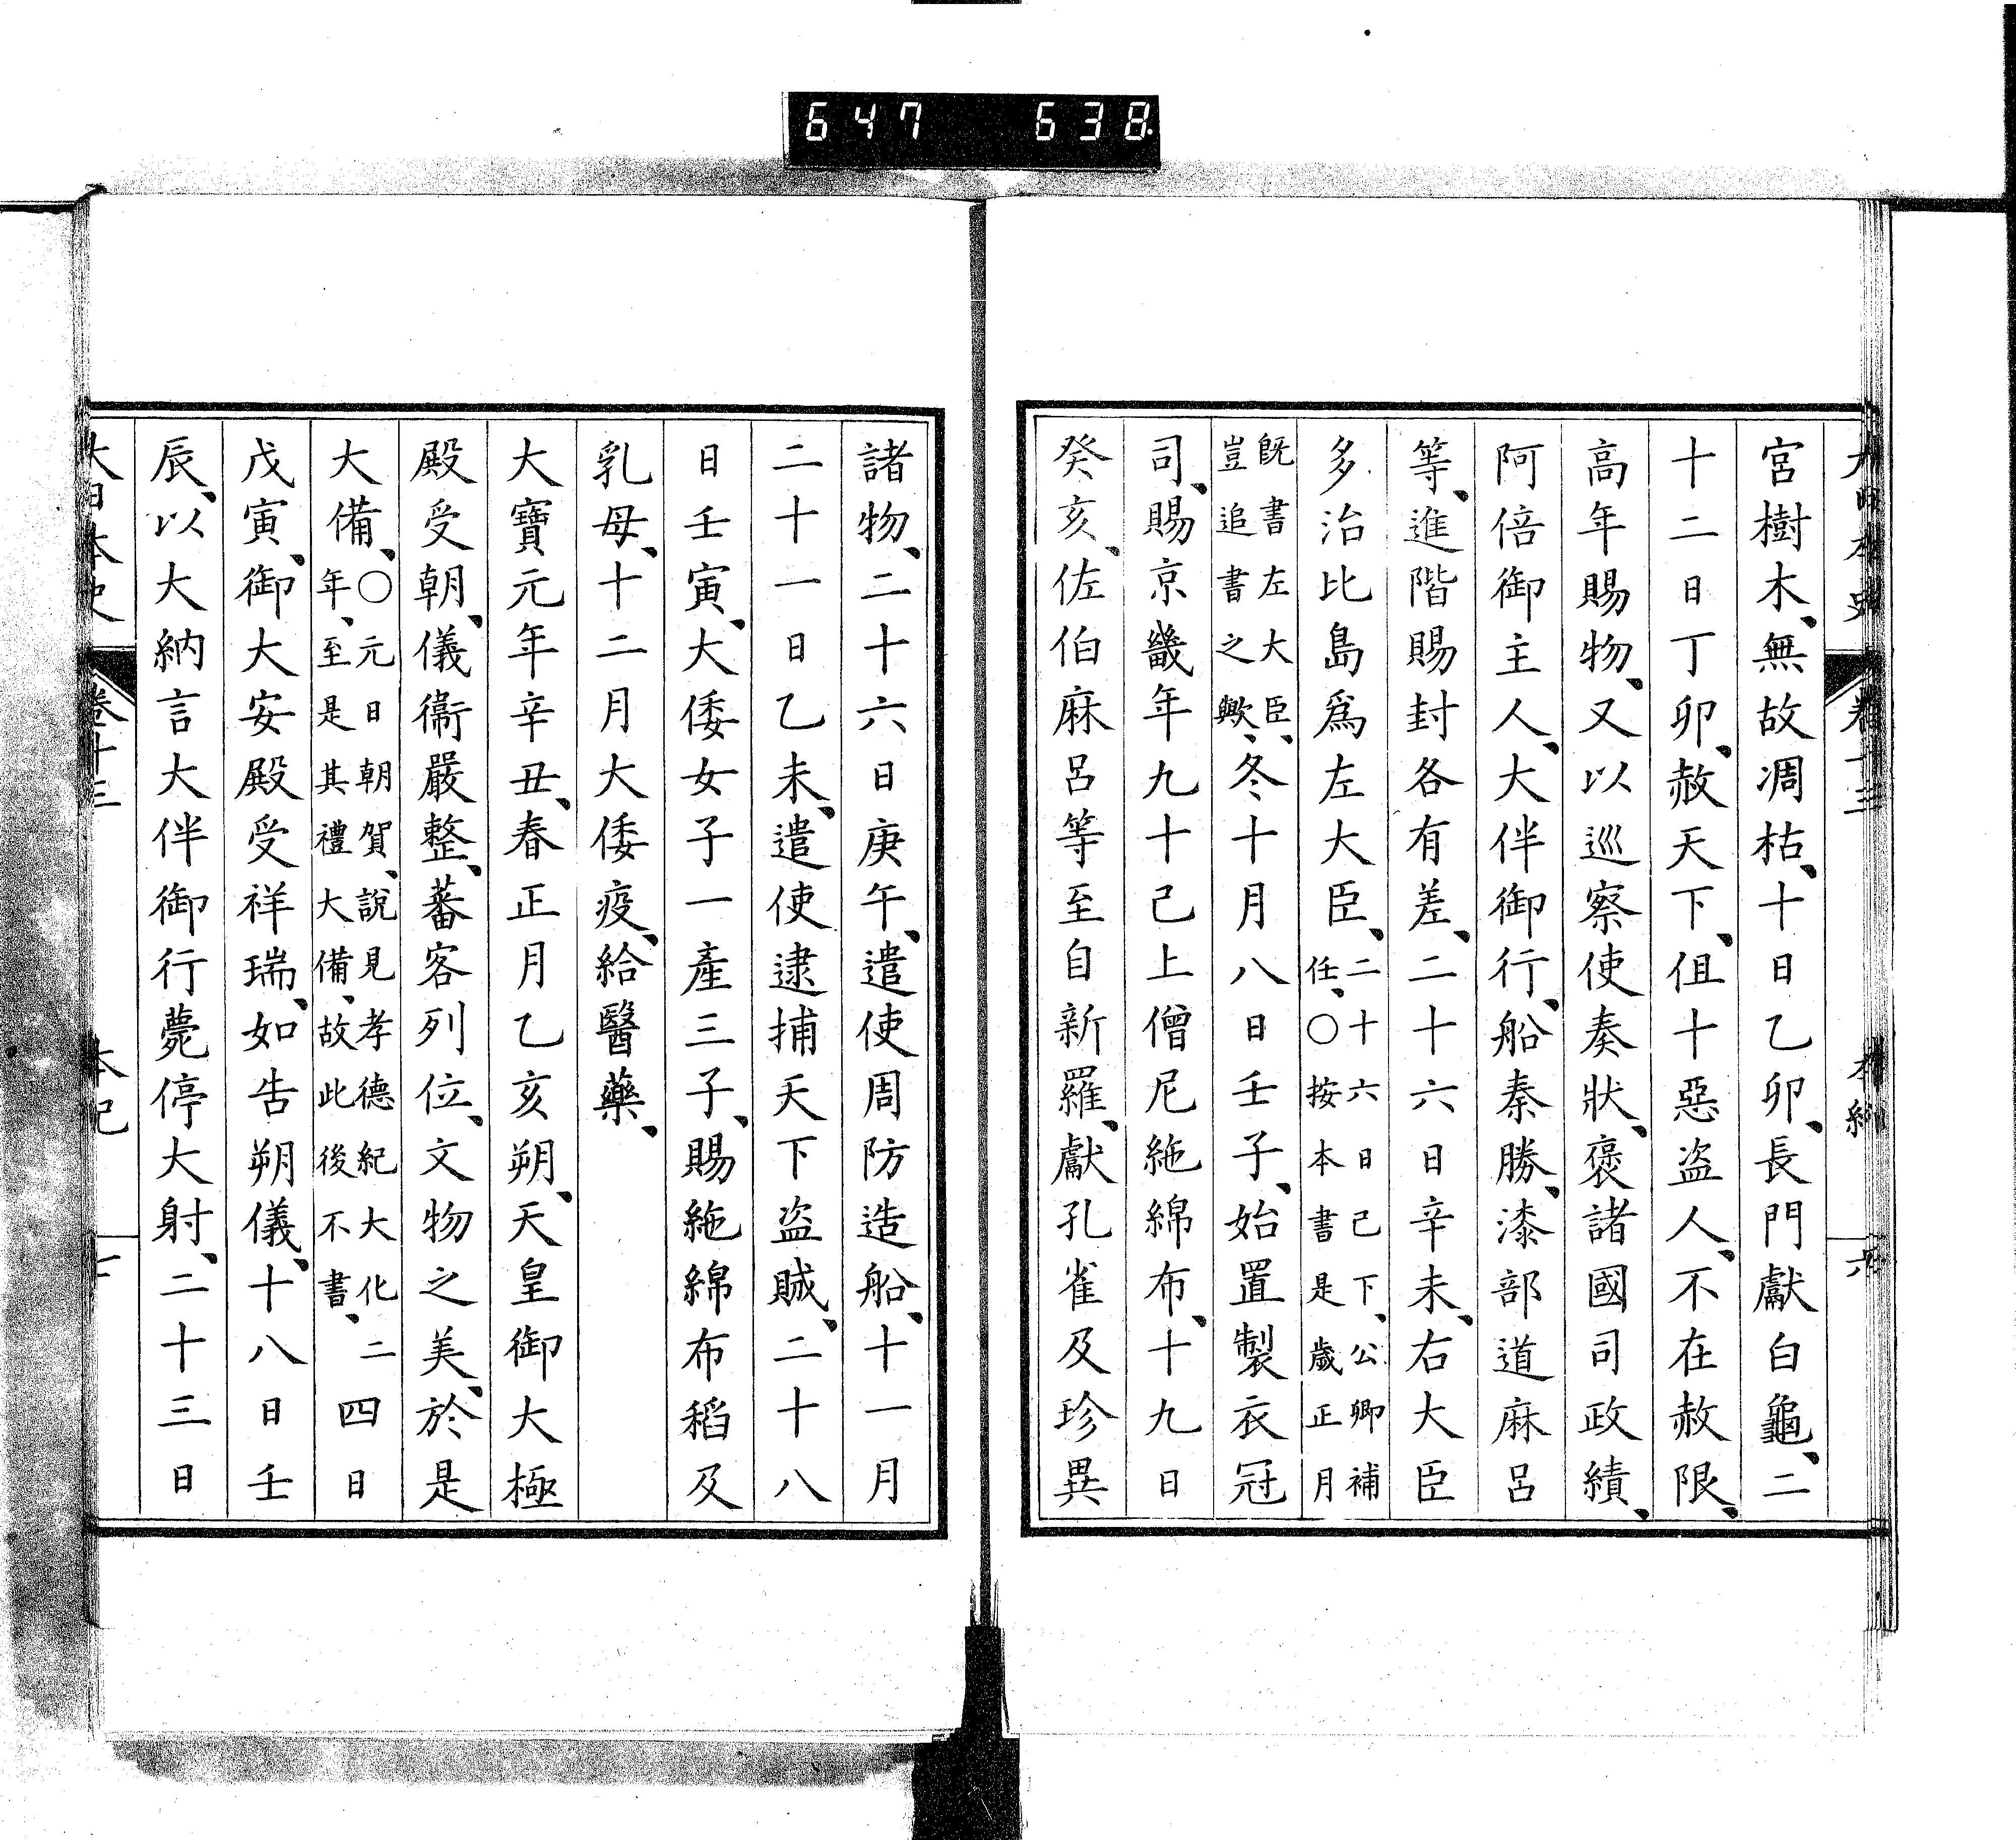 647 638
大日本史 卷十三 本紀 六
宮樹木、無故凋枯、十日乙卯、長門獻白龜、二
十二日丁卯、赦天下、但十惡盜人、不在赦限、
高年賜物、又以巡察使奏狀、褒諸國司政績、
阿倍御主人、大伴御行、船秦勝、漆部道麻呂
等、進階賜封各有差、二十六日辛未、右大臣
多治比島爲左大臣、二十六日己下、公卿補任、〇按本書是歲正月
既書左大臣、豈追書之歟、冬十月八日壬子、始置製衣冠
司、賜京畿年九十已上僧尼絁綿布、十九日
癸亥、佐伯麻呂等至自新羅、獻孔雀及珍異
諸物、二十六日庚午、遣使周防造船、十一月
二十一日乙未、遣使逮捕天下盜賊、二十八
日壬寅、大倭女子一產三子、賜絁綿布稻及
乳母、十二月大倭疫、給醫藥、
大寶元年辛丑、春正月乙亥朔、天皇御大極
殿受朝、儀衞嚴整、蕃客列位、文物之美、於是
大備、〇元日朝賀、說見孝德紀大化二年、至是其禮大備、故此後不書、四日
戊寅、御大安殿受祥瑞、如告朔儀、十八日壬
辰、以大納言大伴御行薨停大射、二十三日
大日本史 卷十三 本紀 七